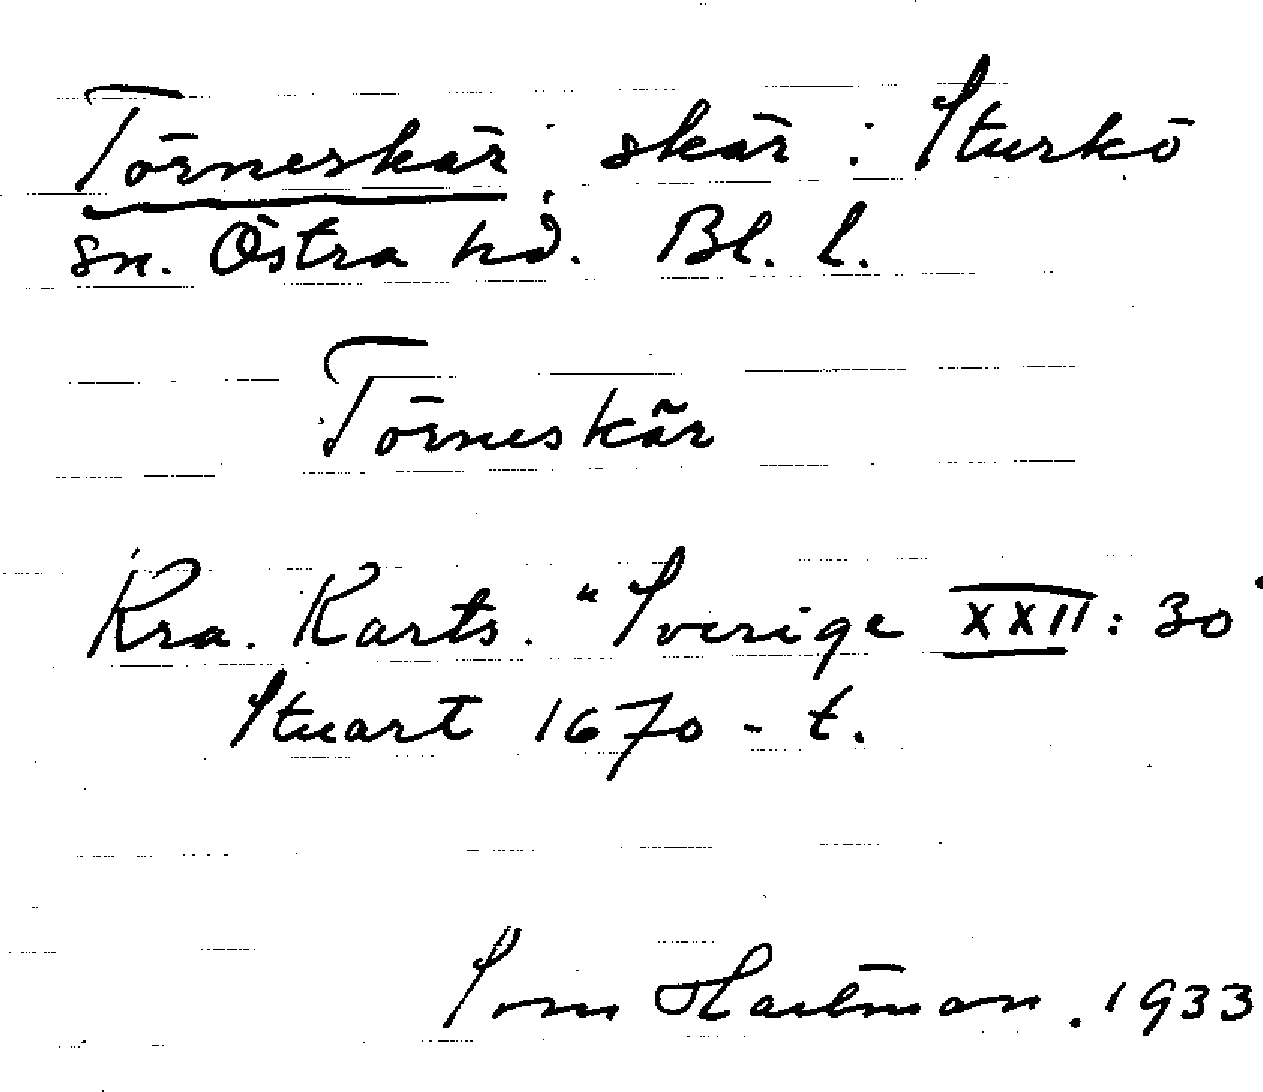 Törneskär, skär: Sturkö
sn. Östra hd. Bl. l.
Törneskär
Kra. Karts. "Sverige XXII: 30"
Stuart 1670-t.
Hartman. 1933